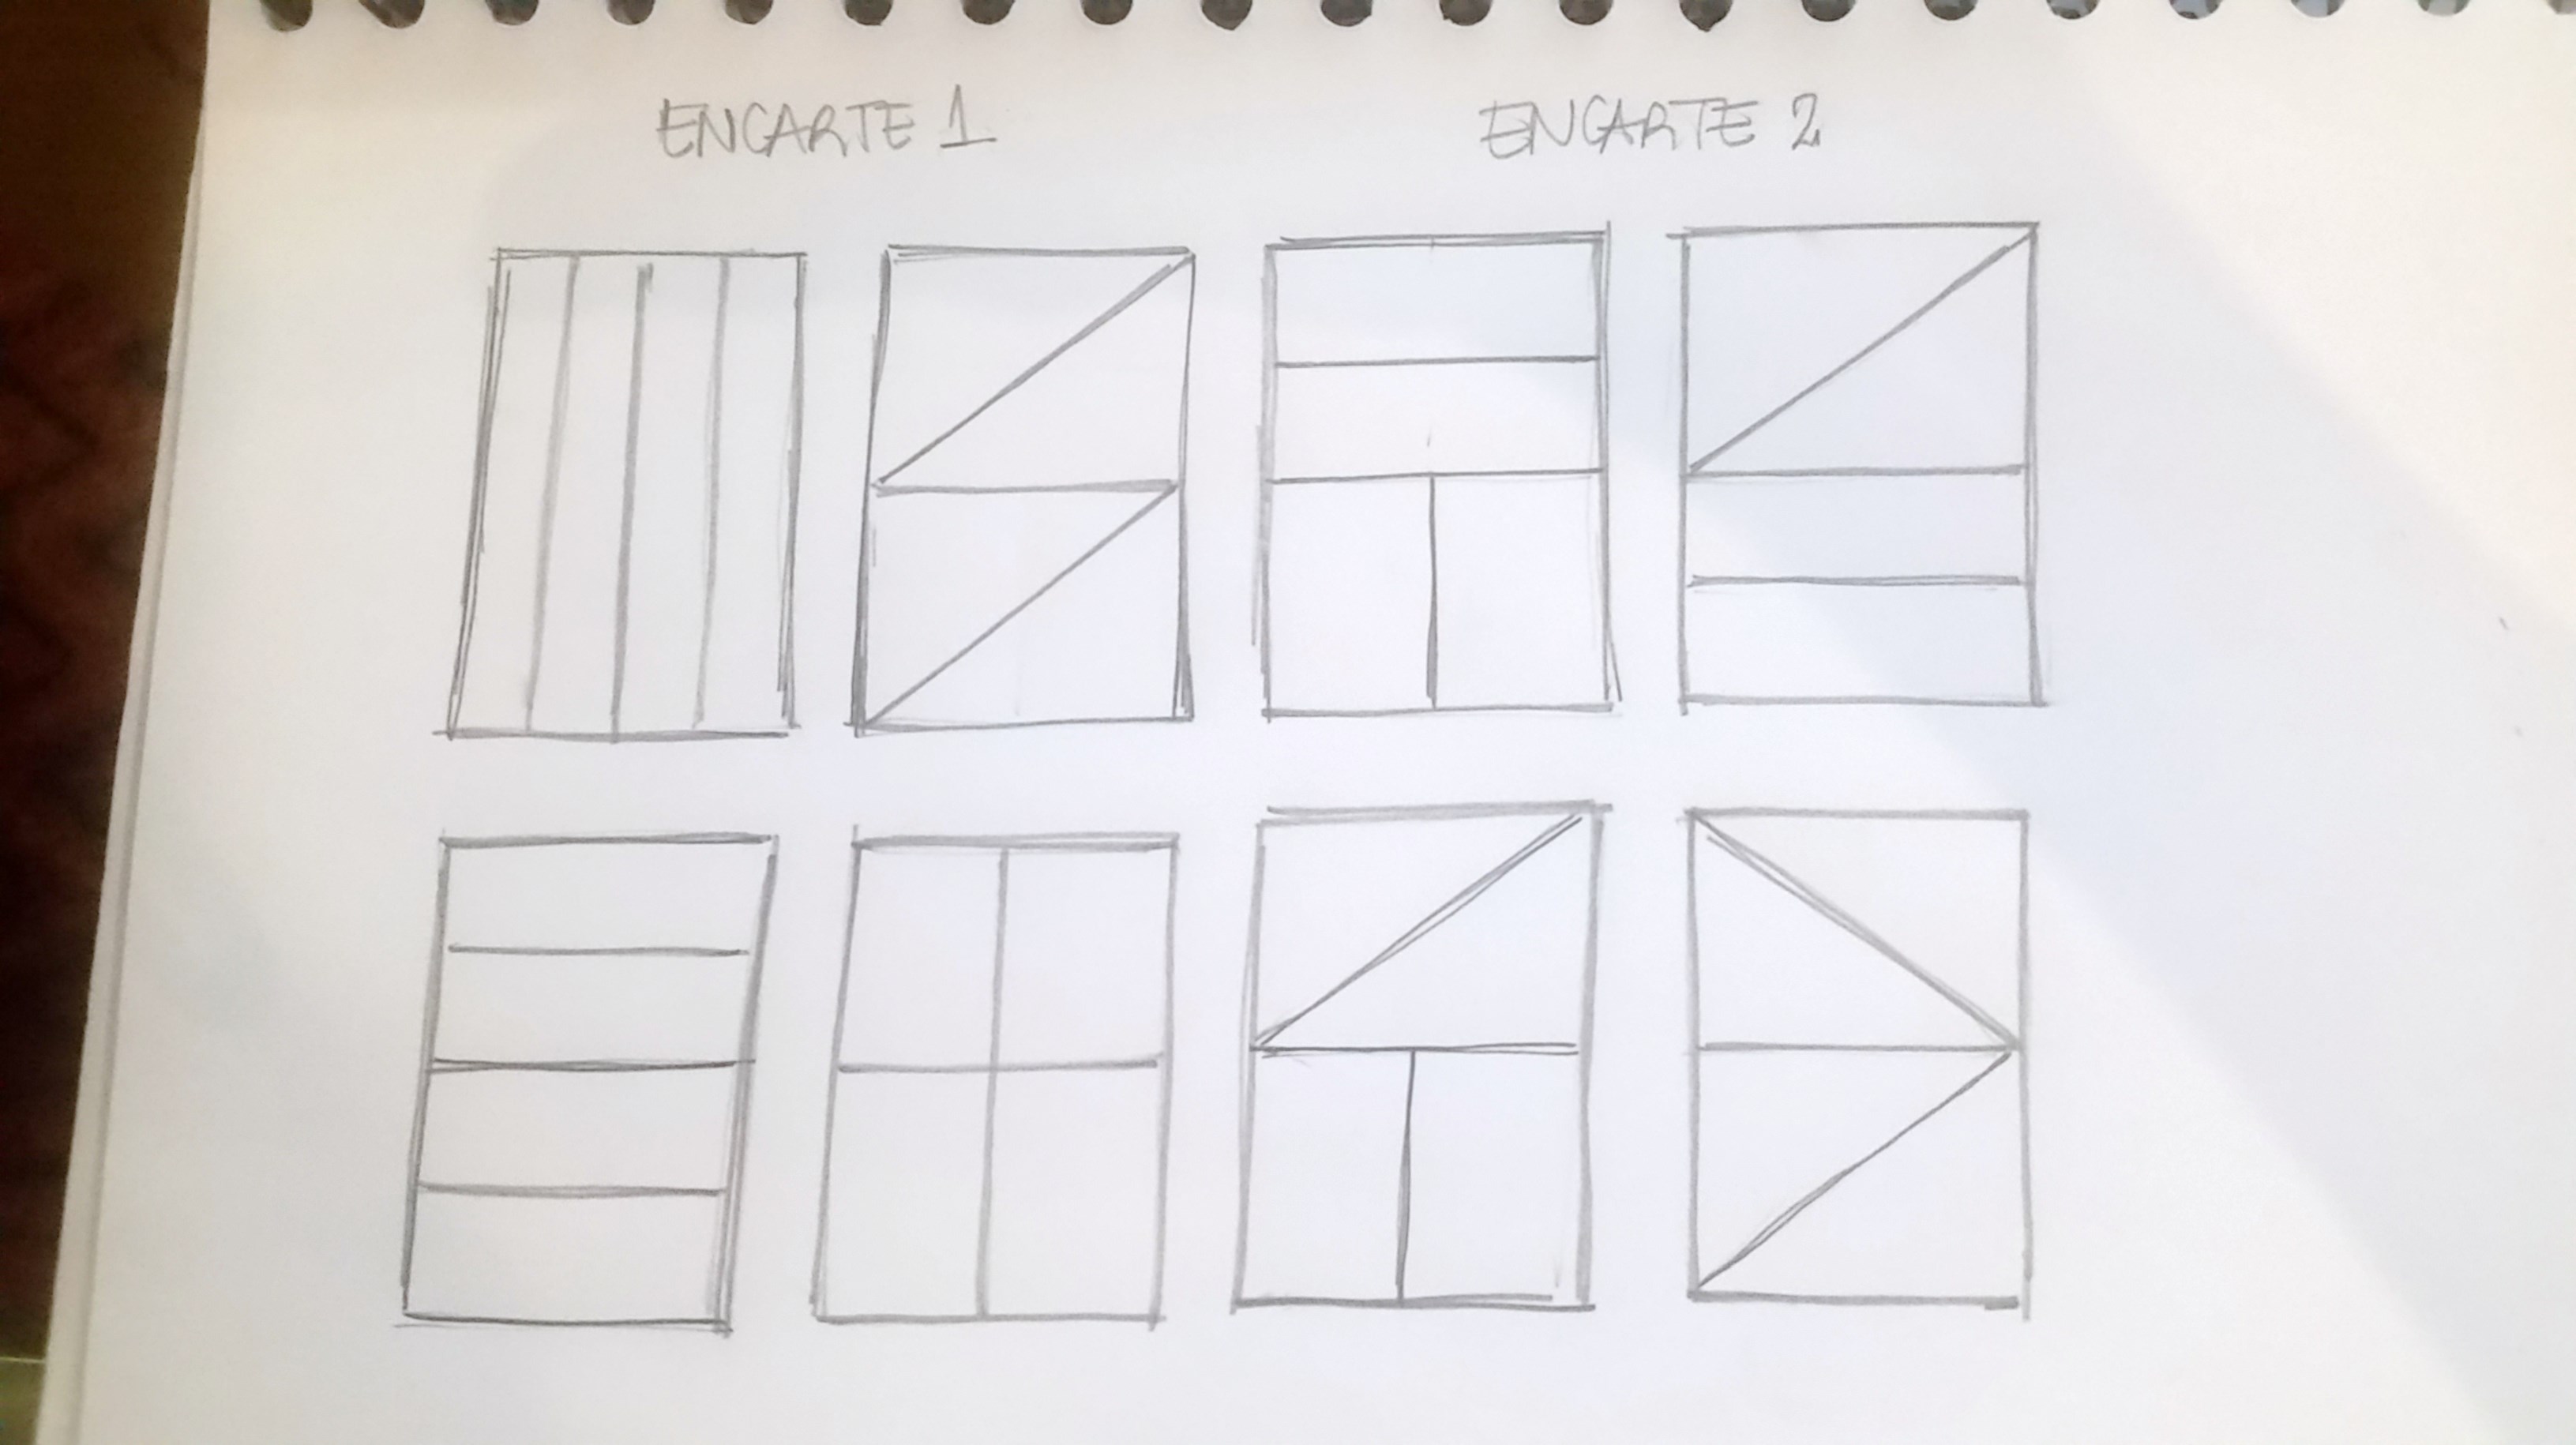 ENCARTE 1
ENCARTE 2